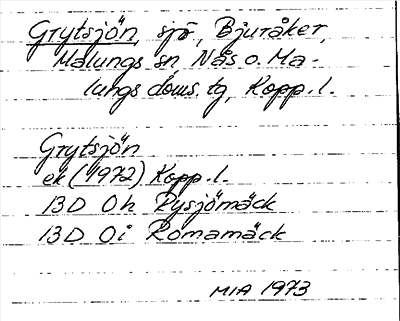 Grytsjön, sjö, Bjuråker,
Malungs sn Nås o. Ma-
lungs doms. tg, Kopp. l.
Grytsjön
ek (1972) Kopp. l.
13D 0h Rysjömäck
13D 0i Romamäck
MIA 1973